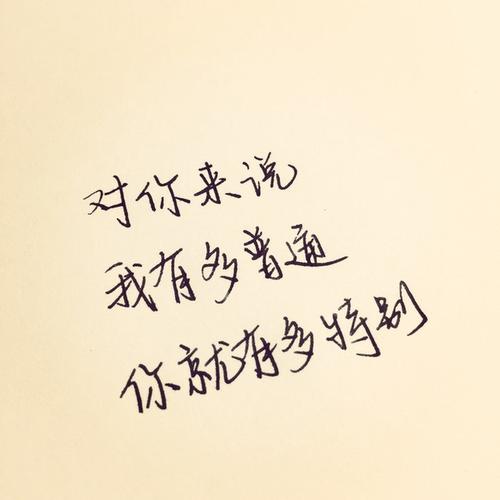 对你来说
我有多普通
你就有多特别